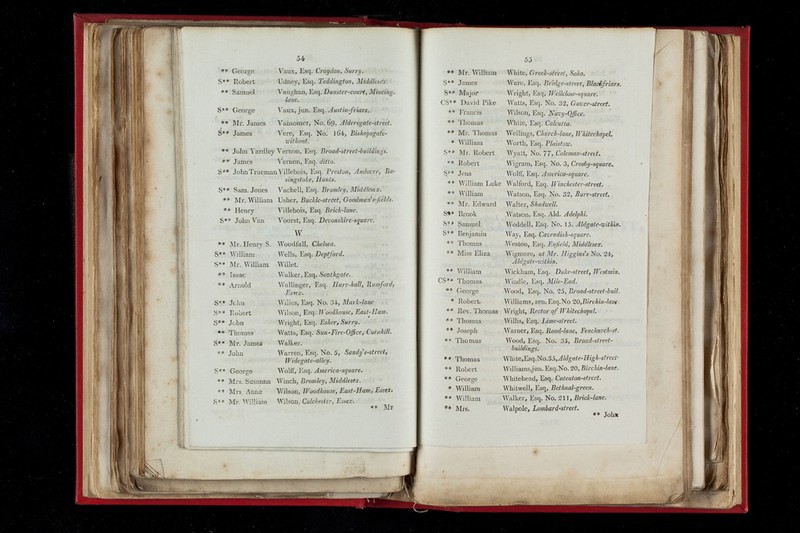 54
** George Vaux, Esq. Croydon, Surry.
S** Robert Udney, Esq. Teddington, Middlesex.
** Samuel Vaughan, Esq. Dunster-court, Mincing-
lane.
S** George Vaux, jun. Esq. Austin-friars.
** Mr. James Vainomer, No. 69, Aldersgate-street.
S** James Vere, Esq. No. 164, Bishopsgate-
without.
** John Yardley Vernon, Esq. Broad-street-buildings.
** James Vernon, Esq. ditto.
S** John Trueman Villebois, Esq. Preston, Andover, Ba-
singstoke, Hants.
S** Sam. Jones Vachell, Esq. Bromley, Middlesex.
** Mr. William Usher, Buckle-street, Goodman's-fields.
** Henry Villebois, Esq. Brick-lane.
S** John Van Voorst, Esq. Devonshire-square.
W
** Mr. Henry S. Woodfall, Chelsea.
S** William Wells, Esq. Deptford.
S** Mr. William Willet.
** Isaac Walker, Esq. Southgate.
** Arnold Wallinger, Esq. Hare-hall, Rumford,
Essex.
S** John Willes, Esq. No. 34, Mark-lane
S** Robert Wilson, Esq. Woodhouse, East-Ham.
S** John Wright, Esq. Esher, Surry.
** Thomas Watts, Esq. Sun-Fire-Office, Cornhill.
S** Mr. James Walker.
** John Warren, Esq. No. 5, Sandy's-street,
Widegate-alley.
S** George Wolff, Esq. America-square.
** Mrs. Susanna Winch, Bromley, Middlesex.
** Mrs. Anne Wilson, Woodhouse, East-Ham, Essex.
S** Mr. William Wilson, Colchester, Essex.
** Mr
55
** Mr. William White, Greek-street, Soho.
S** James Ware, Esq. Bridge-street, Blackfriars.
S** Major Wright, Esq. Wellclose-square.
CS** David Pike Watts, Esq. No. 32, Gower-street.
** Francis Wilson, Esq. Navy-Office.
** Thomas White, Esq. Calcutta.
** Mr. Thomas Weilings, Church-lane, Whitechapel.
** William Worth, Esq. Plaistow.
S** Mr. Robert Wyatt, No. 77, Coleman-street.
** Robert Wigram, Esq. No. 3, Crosby-square.
S** Jens Wolff, Esq. America-square.
** William Luke Walford, Esq. Winchester-street.
** William Watson, Esq. No. 32, Burr-street.
** Mr. Edward Walter, Shadwell.
S** Brook Watson, Esq. Ald. Adelphi.
S** Samuel Weddell, Esq. No. 15, Aldgate-within.
S** Benjamin Way, Esq. Cavendish-square.
** Thomas Weston, Esq. Enfield, Middlesex.
** Miss Eliza Wigmore, at Mr. Higgins's No. 24,
Aldgate-within.
** William Wickham, Esq. Duke-street, Westmin.
CS** Thomas Windle, Esq. Mile-End.
** George Wood, Esq. No. 25, Broad-street-buil.
* Robert Williams, sen. Esq. No 20, Birchin-lane
** Rev. Thomas Wright, Rector of Whitechapel.
** Thomas Willis, Esq. Lime-street.
** Joseph Warner, Esq. Rood-lane, Fenchurch-st.
** Thomas Wood, Esq. No. 35, Broad-street-
buildings.
** Thomas White, Esq. No. 35, Aldgate-High-street
** Robert Williams, jun. Esq. No. 20, Birchin-lane.
** George Whitehead, Esq. Cateaton-street.
* William Whitwell, Esq. Bethnal-green.
** William Walker, Esq. No. 211, Brick-lane.
** Mrs. Walpole, Lombard-street.
** John